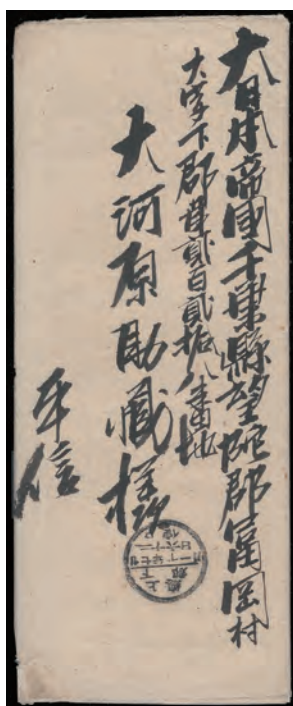 大日本帝國千葉縣望陀郡富岡村
大字下郡第貳百貳拾八番地
大河原助藏様
平信